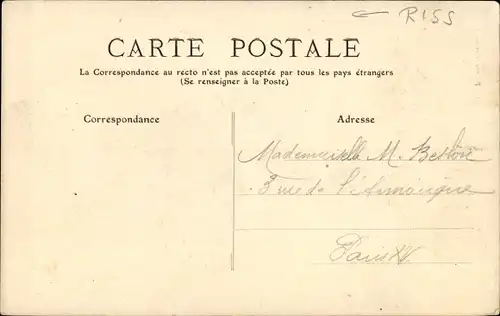 R155
CARTE POSTALE
La Correspondance au recto n'est pas acceptée par tous les pays étrangers
(Se renseigner à la Poste)
Correspondance
Adresse
Mademoiselle M.
3 rue de l'Armorique
Paris XV.